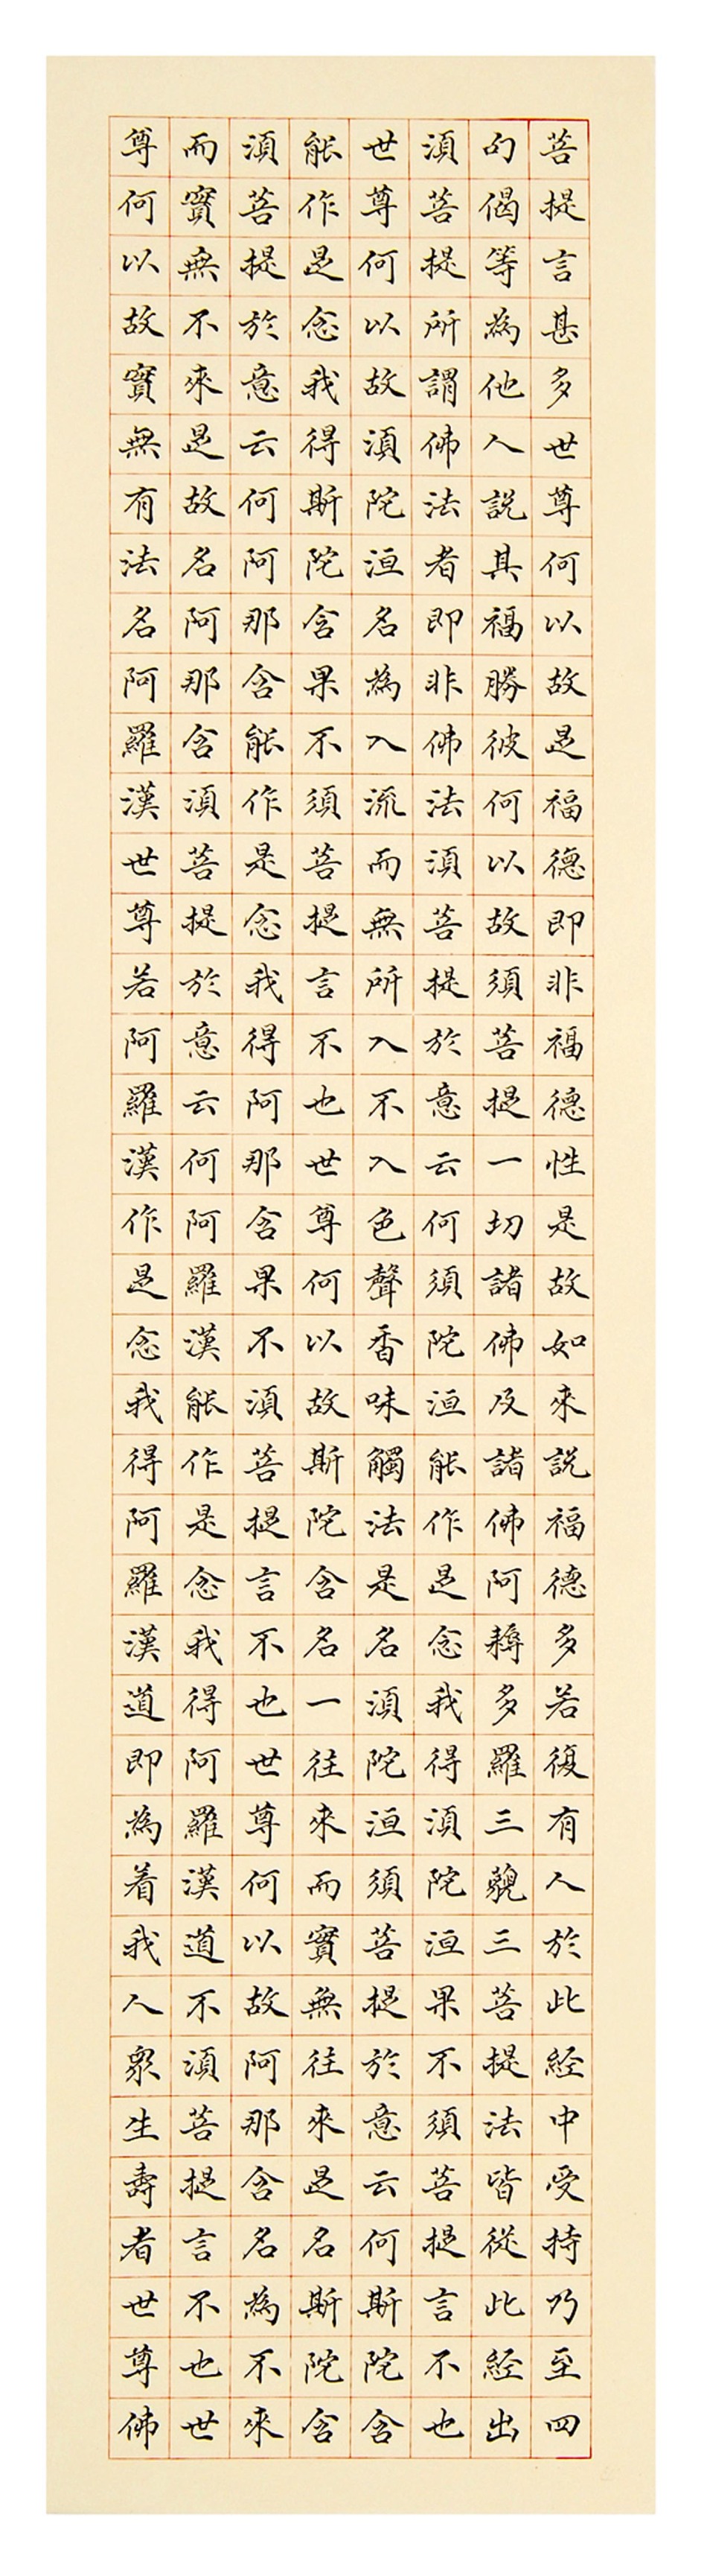 菩提言甚多世尊何以故是福德即非福德性是故如來説福德多若復有人於此經中受持乃至四
句偈等為他人説其福勝彼何以故須菩提一切諸佛及諸佛阿耨多羅三藐三菩提法皆從此經出
須菩提所謂佛法者即非佛法須菩提於意云何須陀洹能作是念我得須陀洹果不須菩提言不也
世尊何以故須陀洹名為入流而無所入不入色聲香味觸法是名須陀洹須菩提於意云何斯陀含
能作是念我得斯陀含果不須菩提言不也世尊何以故斯陀含名一往來而實無往來是名斯陀含
須菩提於意云何阿那含能作是念我得阿那含果不須菩提言不也世尊何以故阿那含名為不來
而實無不來是故名阿那含須菩提於意云何阿羅漢能作是念我得阿羅漢道不須菩提言不也世
尊何以故實無有法名阿羅漢世尊若阿羅漢作是念我得阿羅漢道即為着我人衆生壽者世尊佛